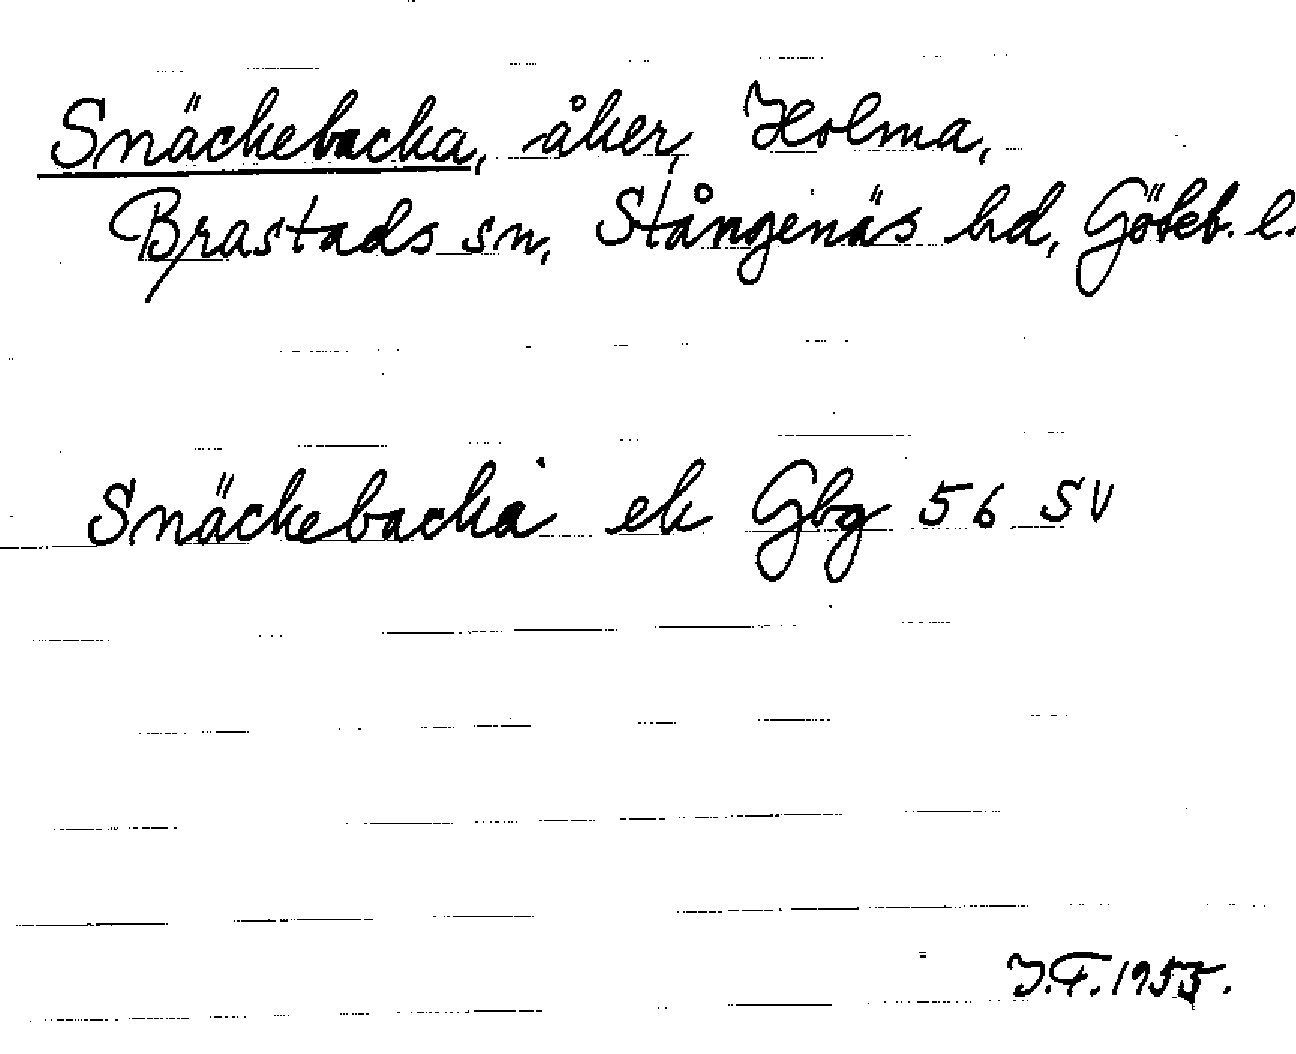 Snäckebacka, åker, Holma,
Brastads sn, Stångenäs hd, Göteb. l.
Snäckebacka ek Gbg 56 SV
J.F. 1955.